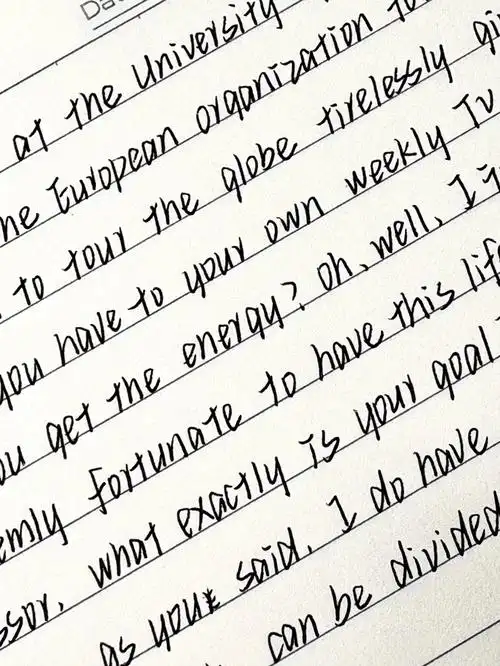 Da
at the University
he European organization to
to tour the globe tirelessly gi
you have to your own weekly TV
ou get the energy? Oh, well, I
emly fortunate to have this life
ssor, what exactly is your goal
as you said, I do have
can be divided